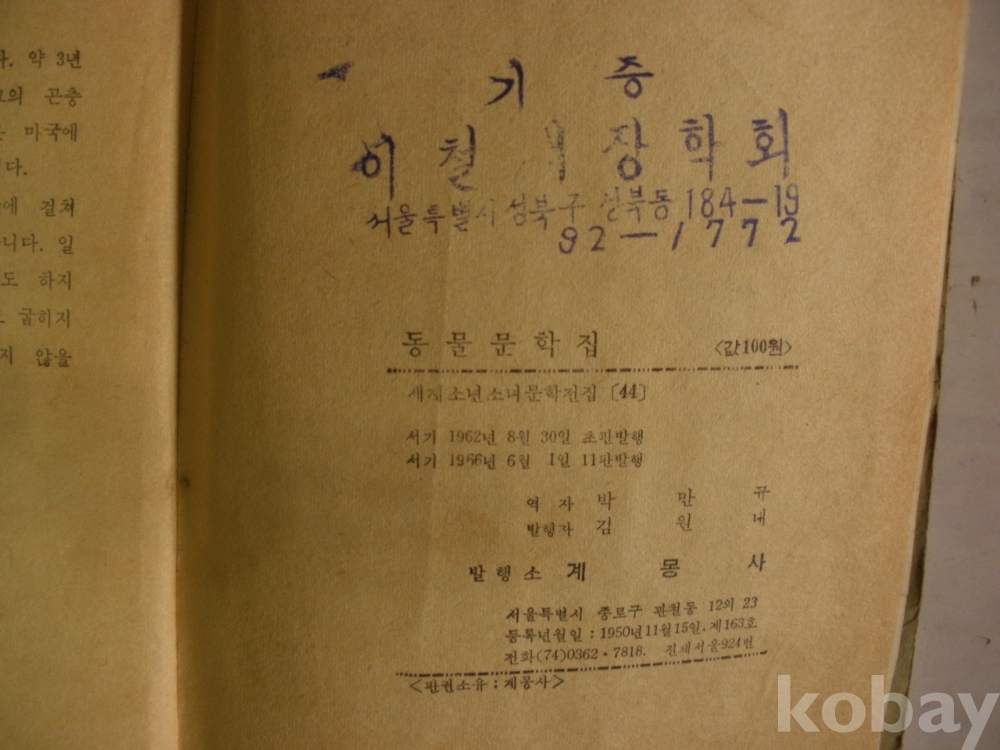 다. 약 3년
그의 곤충
마국에
다.
에 걸쳐
니다. 일
도 하지
굽히지
지 않을
기 증
이 철 장 학 회
서울특별시 성북구 성북동 184-19
92-1772
동 물 문 학 집 <값100원>
세계소년소녀문학전집 〔44〕
서기 1962년 8월 30일 초판발행
서기 1966년 6월 1일 11판발행
역 자 박 만 규
발행자 김 원 대
발 행 소 계 몽 사
서울특별시 종로구 관철동 12의 23
등록년월일 : 1950년11월15일. 제163호
전화(74)0362·7818. 진체서울924번
<판권소유 : 계몽사>
kobay